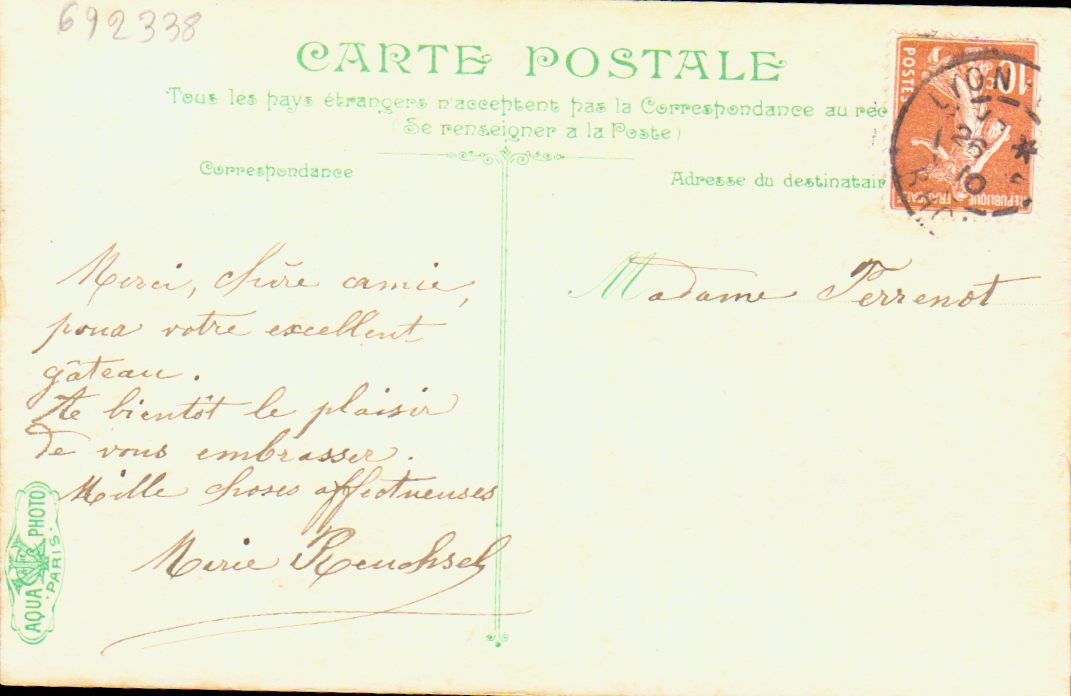 692338
CARTE POSTALE
Tous les pays étrangers n'acceptent pas la Correspondance au rec
(Se renseigner a la Poste)
Correspondance
Adresse du destinatair
POSTES
10
REPUBLIQUE
FRANÇAISE
LYON
26
10
RHO
Merci, chère amie,
pour votre excellent
gâteau.
A bientôt le plaisir
de vous embrasser.
Mille choses affectueuses
Marie Reuchsel
Madame Perrenot
AQUA PHOTO
PARIS